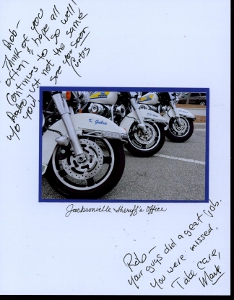 Rob-
Think of you
often & hope all
Continues to go well!
Radio's just not the same
w/o you! See you soon
Curtis
Jacksonville Sheriff's Office
Rob-
You guys did a great job.
You were missed.
Take care,
Mark